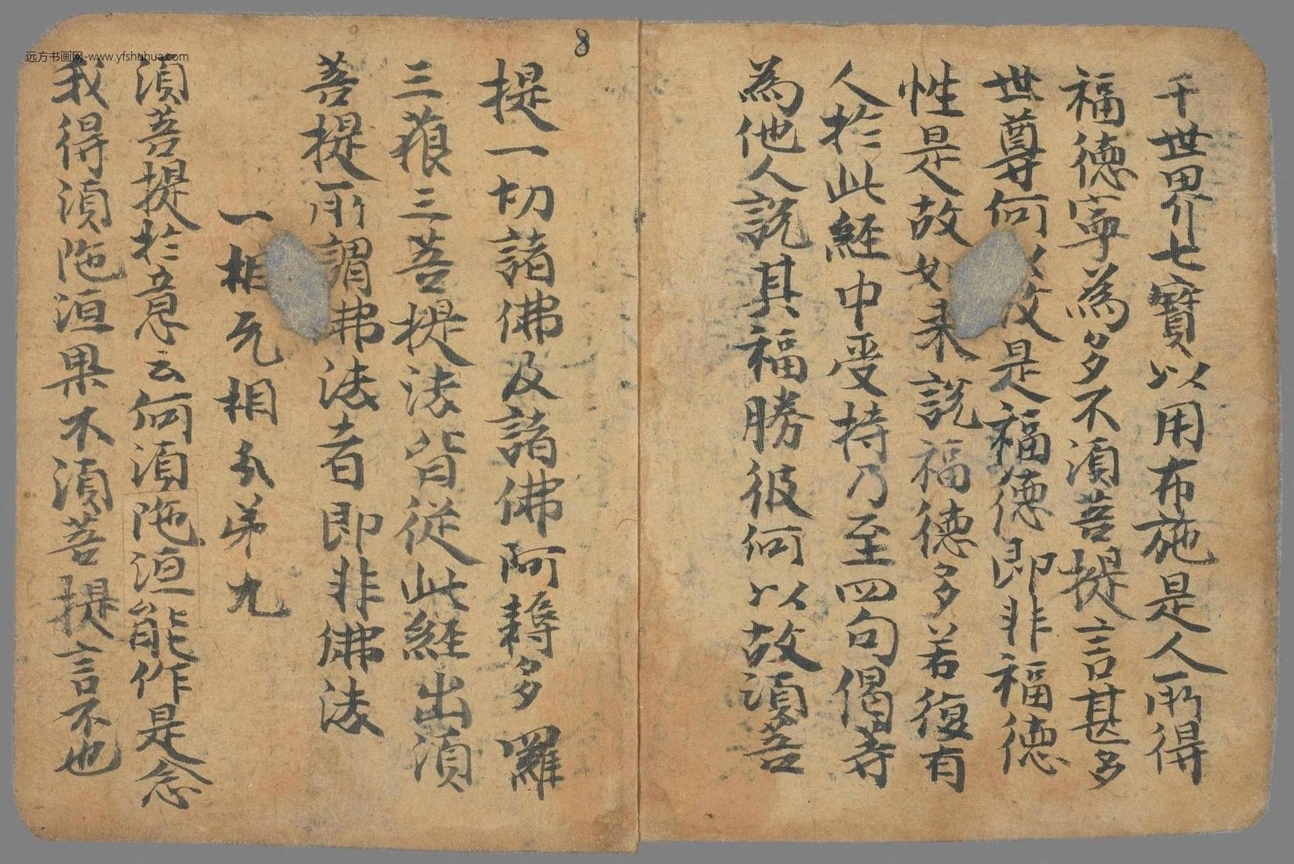 远方书画网-www.yfshuhua.com
8
千世界七寶以用布施是人所得
福德寧為多不須菩提言甚多
世尊何以故是福德即非福德
性是故如来說福德多若復有
人扵此經中受持乃至四句偈等
為他人說其福勝彼何以故須菩
提一切諸佛及諸佛阿耨多羅
三藐三菩提法皆從此經出須
菩提所謂佛法者即非佛法
一相无相分弟九
須菩提扵意云何須陁洹能作是念
我得須陁洹果不須菩提言不也